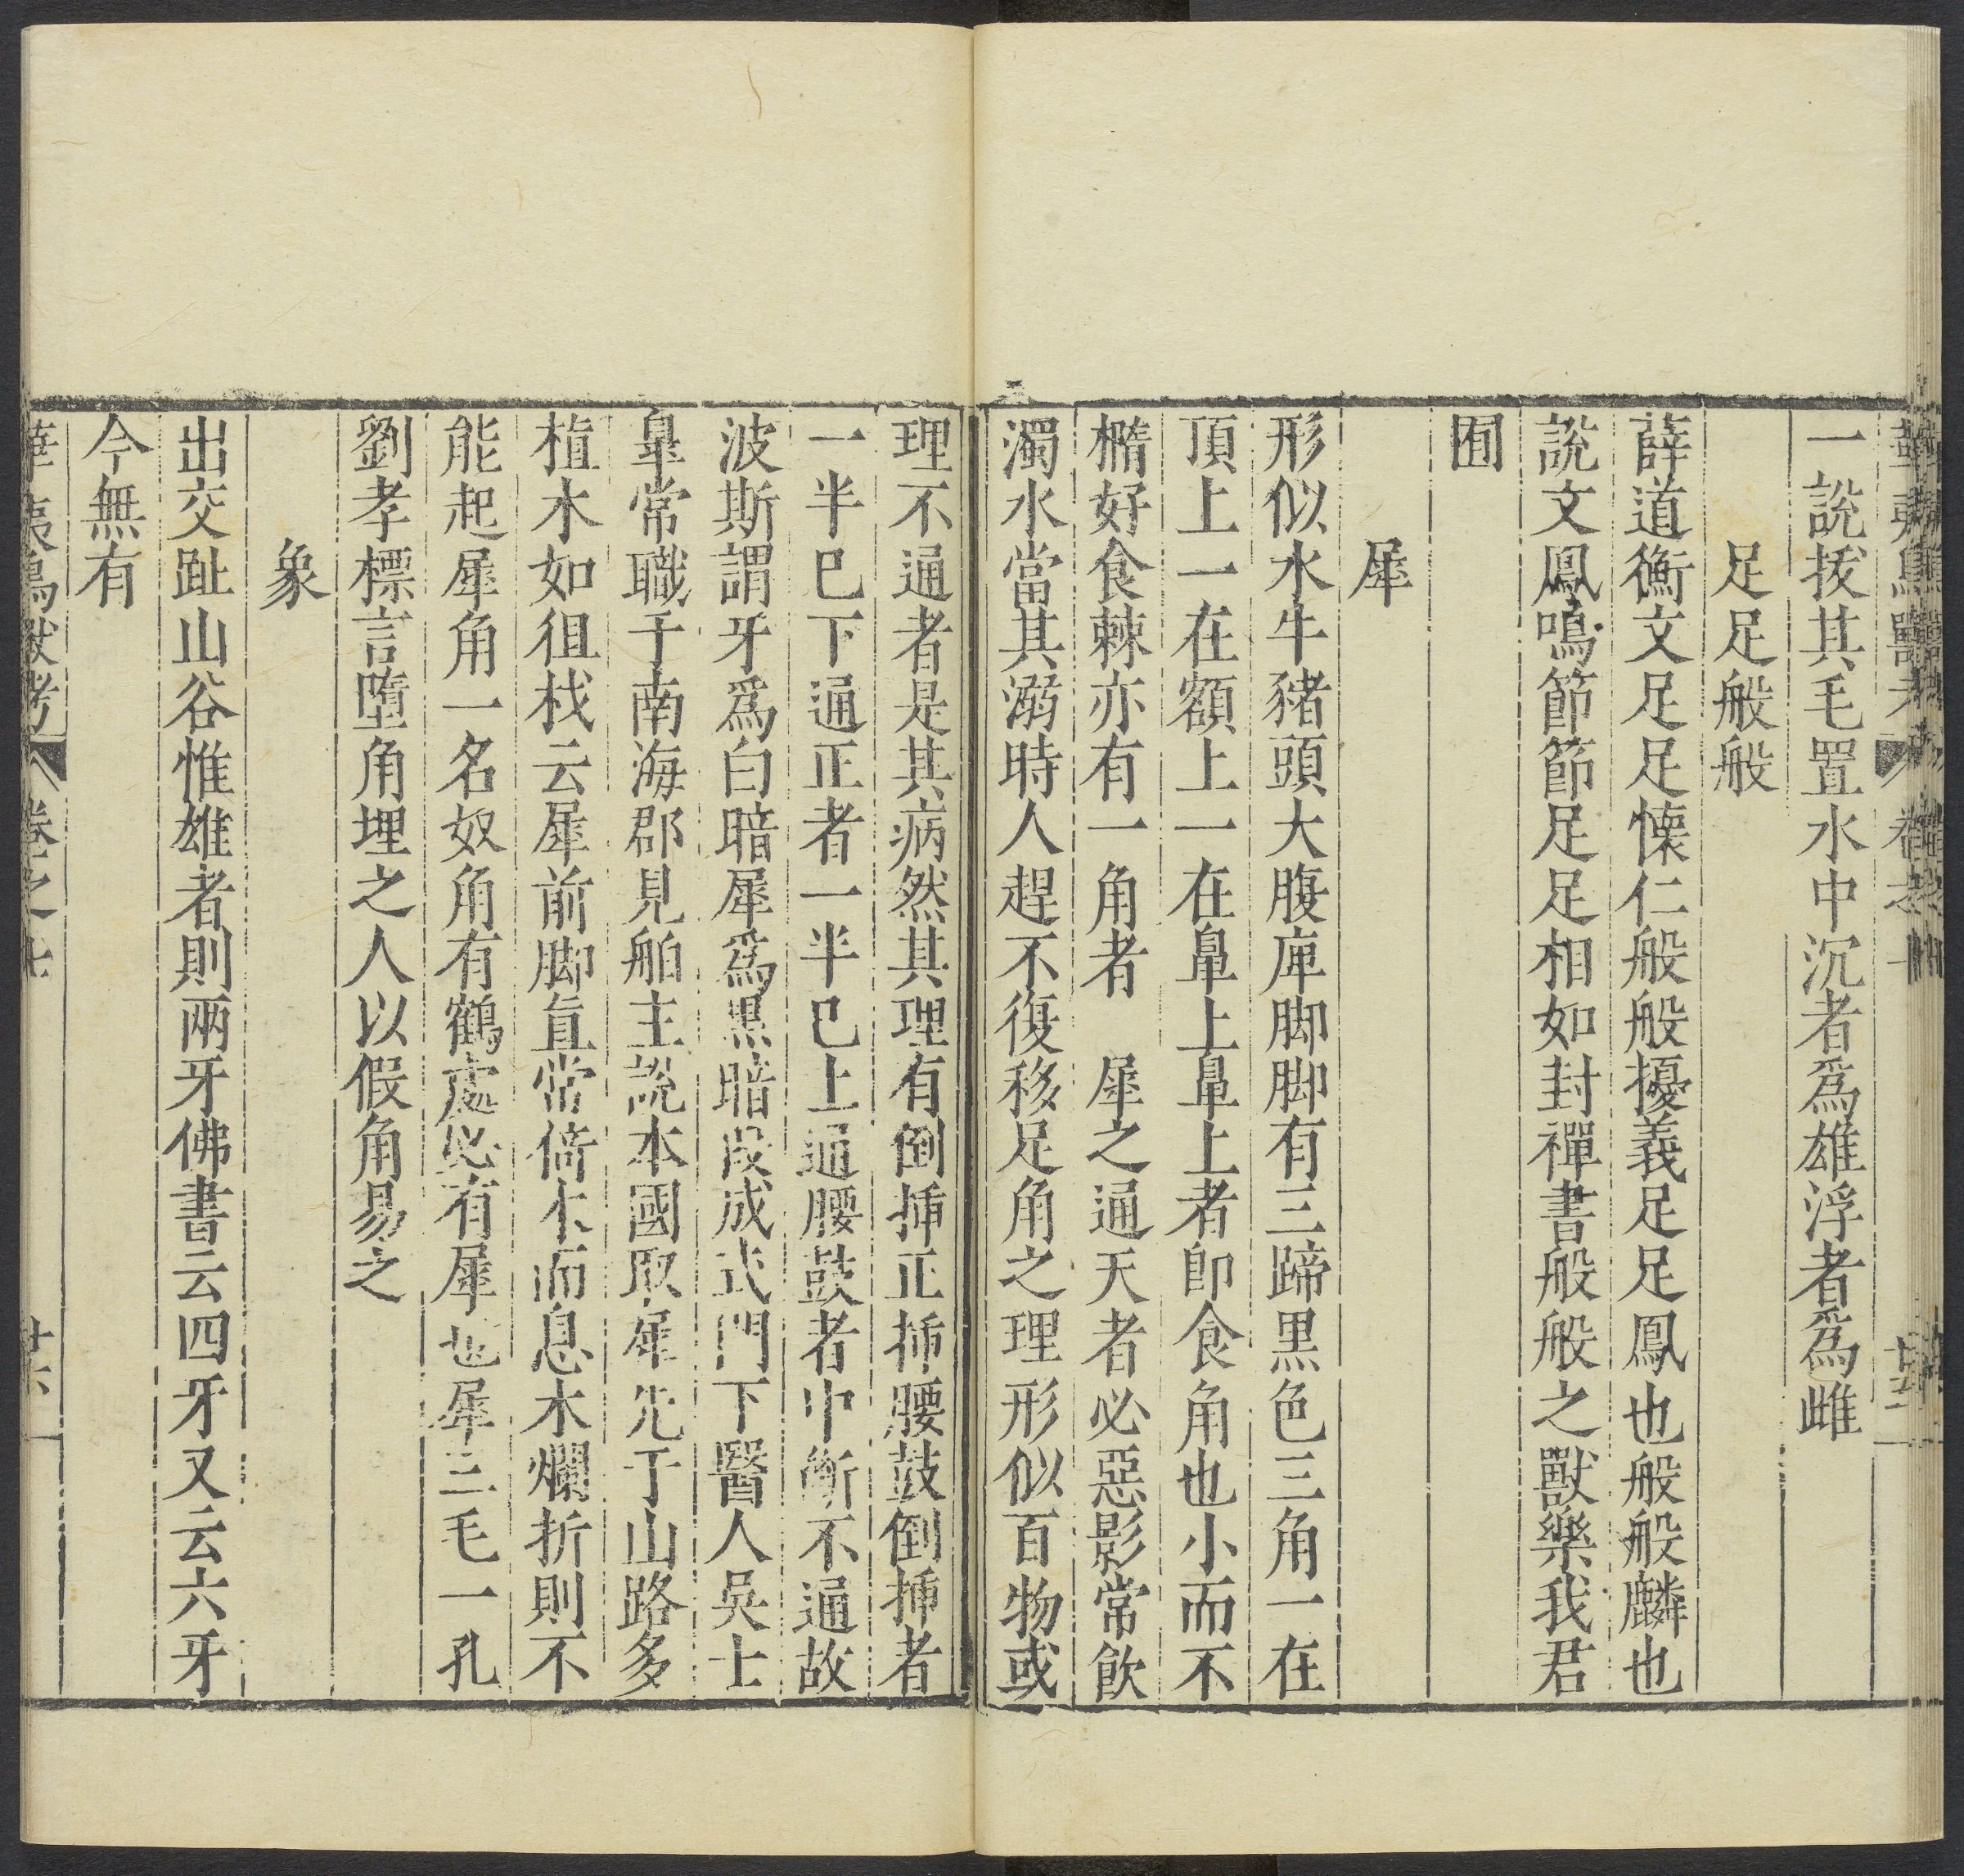 一說拔其毛置水中沉者爲雄浮者爲雌
足足般般
薛道衡文足足懷仁般般擾義足足鳳也般般麟也
說文鳳鳴節節足足相如封禪書般般之獸樂我君
囿
犀
形似水牛豬頭大腹庳脚脚有三蹄黑色三角一在
頂上一在額上一在鼻上鼻上者卽食角也小而不
橢好食棘亦有一角者　犀之通天者必惡影常飮
濁水當其溺時人趕不復移足角之理形似百物或
理不通者是其病然其理有倒揷正揷腰鼓倒揷者
一半已下通正者一半已上通腰鼓者中斷不通故
波斯謂牙爲白暗犀爲黑暗段成式門下醫人吳士
皐常職于南海郡見舶主說本國取犀先于山路多
植木如徂栈云犀前脚直常倚木而息木爛折則不
能起犀角一名奴角有鶴處必有犀也犀三毛一孔
劉孝標言墮角埋之人以假角易之
象
出交趾山谷惟雄者則兩牙佛書云四牙又云六牙
今無有
華夷鳥獸考 卷之七 廿六